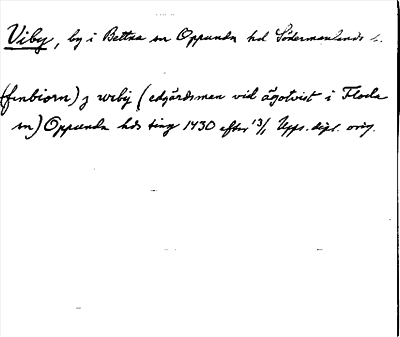 Viby, by i Bettna sn Oppunda hd Södermanlands l.
(finbiorn) j weby (edgärdsmen vid ägotvist i Floda
sn) Oppunda hds ting 1430 efter 13/1 Upps. dipl. orig.